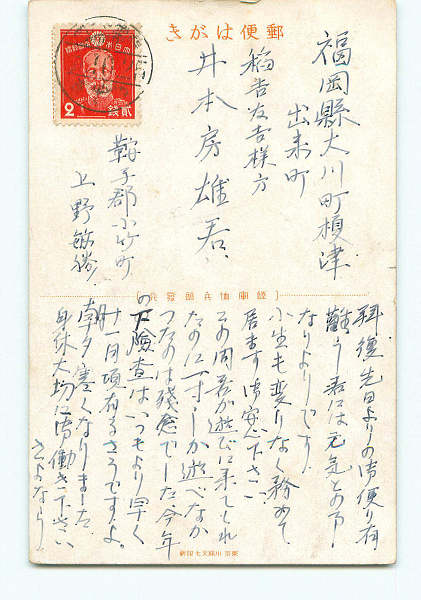 郵便はがき
大日本帝國郵便
2
銭
貳
福岡縣大川町榎津
出来町
稲吉友吉様方
井本房雄君
鞍手郡小竹町
上野敏勝
拝復先日よりの御便り有
難う君には元気との事
なりよりです
小生も変りなく務めて
居ます御安心下さい
この間君が遊びに来てくれ
たのに一寸しか遊べなか
つたのは残念でした今年
の検査はいつもより早く
十一月頃有るさうですよ
朝夕寒くなりました
身体大切に御働き下さい
さよなら